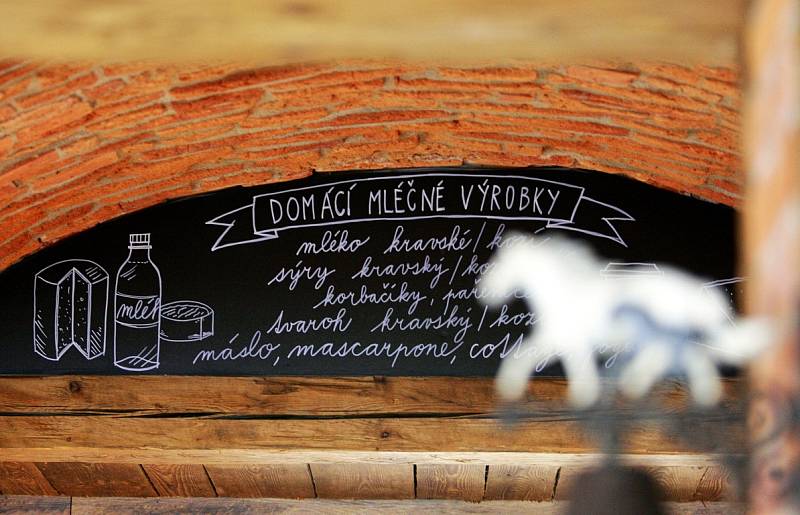 DOMÁCÍ MLÉČNÉ VÝROBKY
mléko kravské/kozí
sýry kravský/ko
korbačíky, pařen
tvaroh kravský/koz
máslo, mascarpone, cottage
mlék